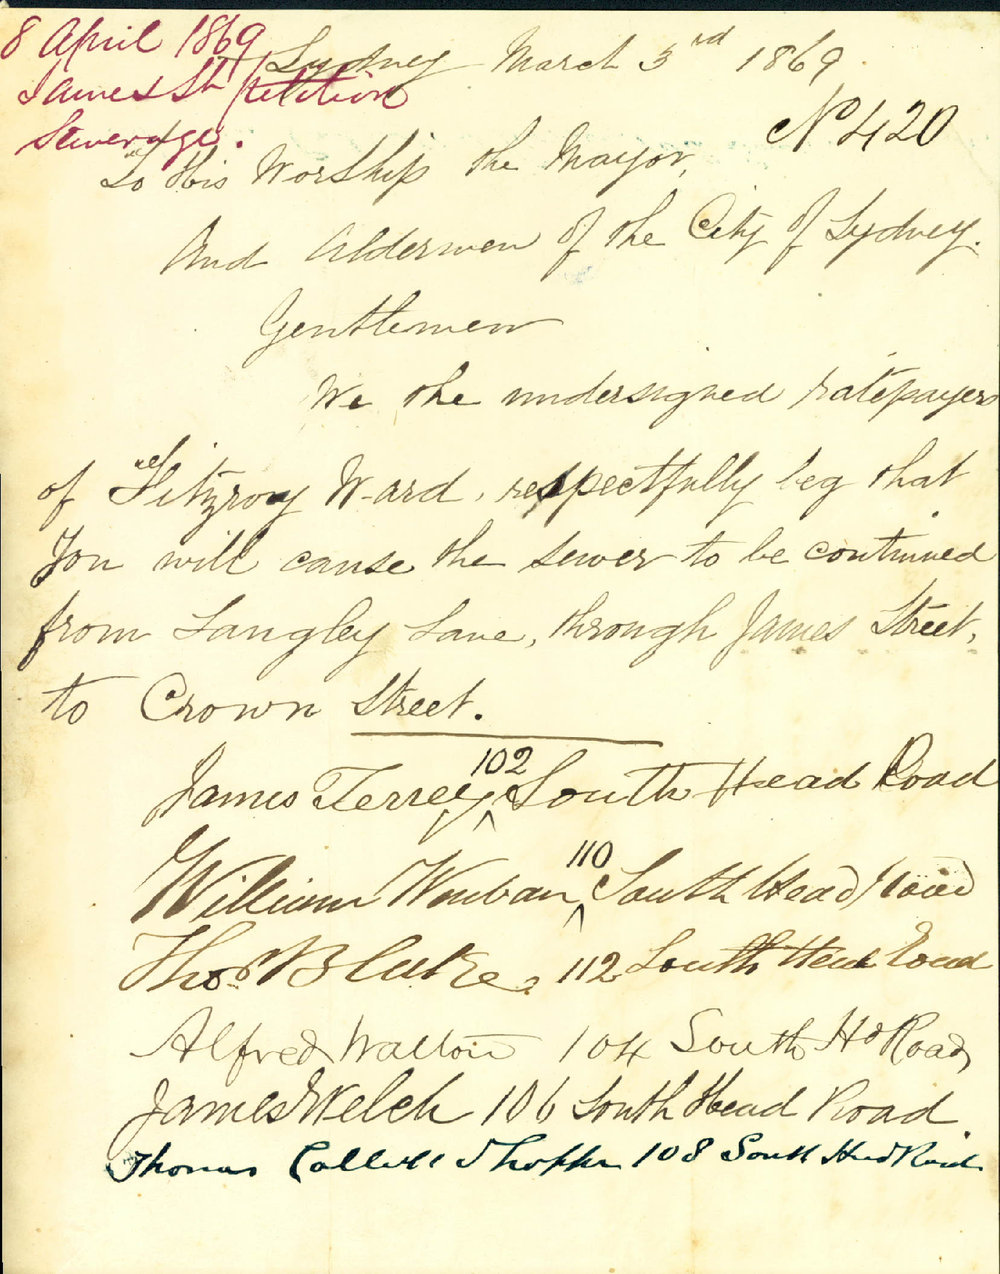 8 April 1869
James St petition
Sewerage.
Sydney March 3rd 1869
No 420
To His Worship the Mayor,
And Aldermen of the City of Sydney.
Gentlemen
We the undersigned ratepayers
of Fitzroy Ward, respectfully beg that
You will cause the sewer to be continued
from Langley Lane, through James Street,
to Crown Street.
James Terrey 102 South Head Road
William 110 South Head Road
Thos B Clarke. 112 South Head Road
Alfred Walton 104 South Hd Road
James Welch 106 South Head Road
Thomas 108 South Head Road